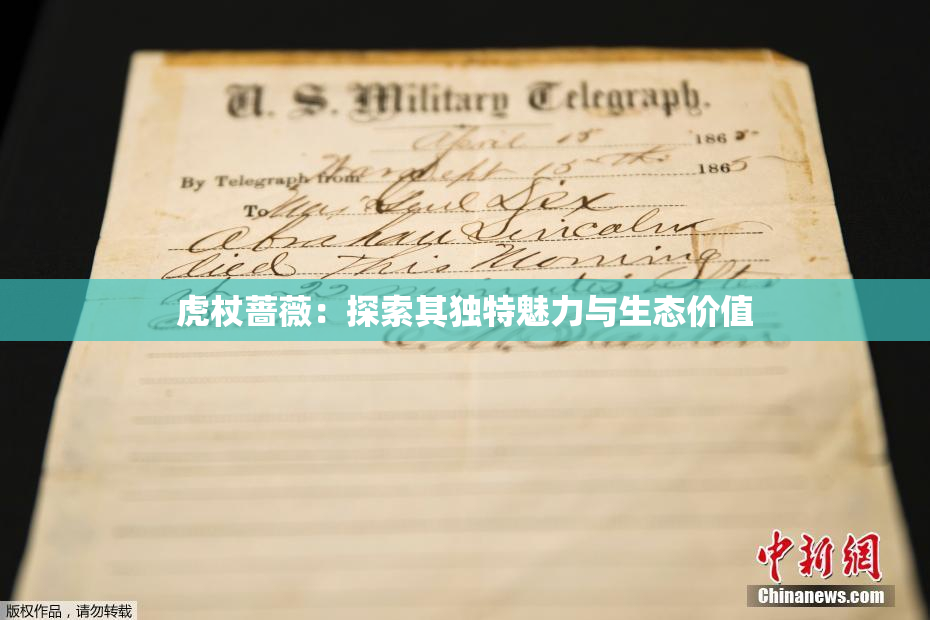 U. S. Military Telegraph.
April 15 1865
By Telegraph from War Dept 15th 1865
To Maj Genl Dix
Abraham Lincoln
died This Morning
22 minutes after
虎杖蔷薇：探索其独特魅力与生态价值
E. M. Stanton
中新網
Chinanews.com
版权作品，请勿转载